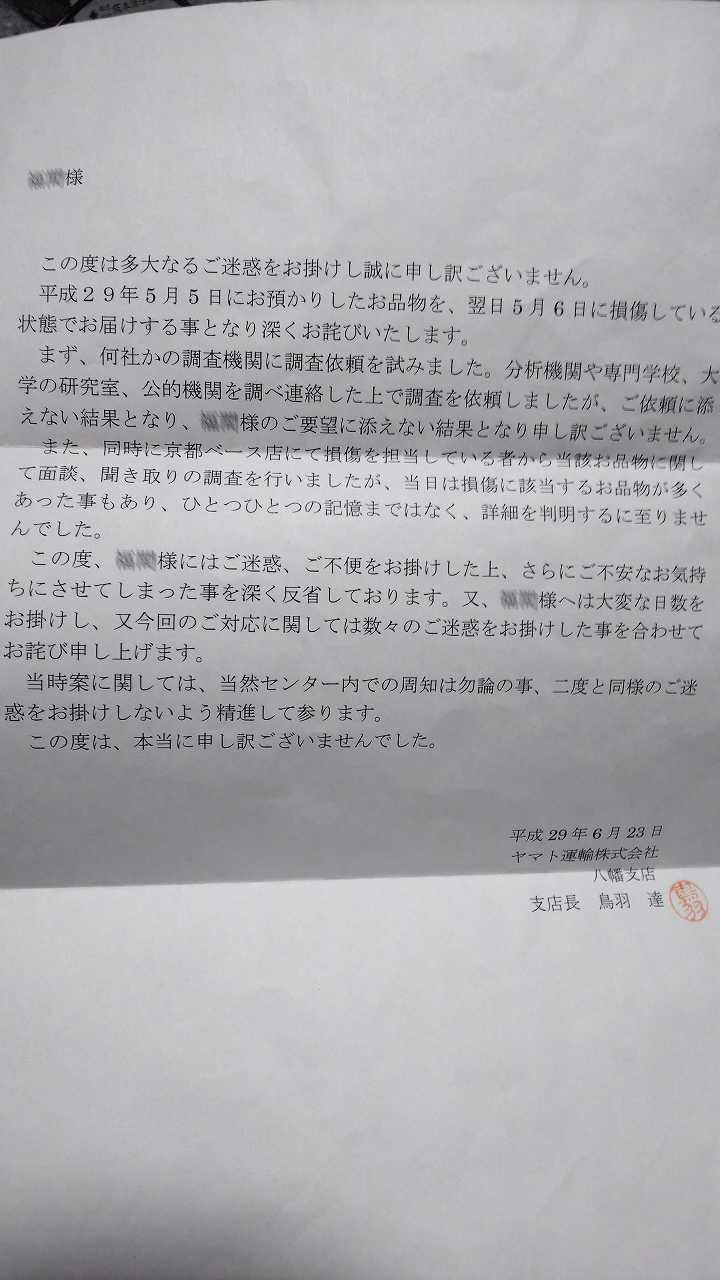 様
この度は多大なるご迷惑をお掛けし誠に申し訳ございません。
平成29年5月5日にお預かりしたお品物を、翌日5月6日に損傷している
状態でお届けする事となり深くお詫びいたします。
まず、何社かの調査機関に調査依頼を試みました。分析機関や専門学校、大
学の研究室、公的機関を調べ連絡した上で調査を依頼しましたが、ご依頼に添
えない結果となり、様のご要望に添えない結果となり申し訳ございません。
また、同時に京都ベース店にて損傷を担当している者から当該お品物に関し
て面談、聞き取りの調査を行いましたが、当日は損傷に該当するお品物が多く
あった事もあり、ひとつひとつの記憶まではなく、詳細を判明するに至りませ
んでした。
この度、様にはご迷惑、ご不便をお掛けした上、さらにご不安なお気持
ちにさせてしまった事を深く反省しております。又、様へは大変な日数を
お掛けし、又今回のご対応に関しては数々のご迷惑をお掛けした事を合わせて
お詫び申し上げます。
当時案に関しては、当然センター内での周知は勿論の事、二度と同様のご迷
惑をお掛けしないよう精進して参ります。
この度は、本当に申し訳ございませんでした。
平成29年6月23日
ヤマト運輸株式会社
八幡支店
支店長 鳥羽 達